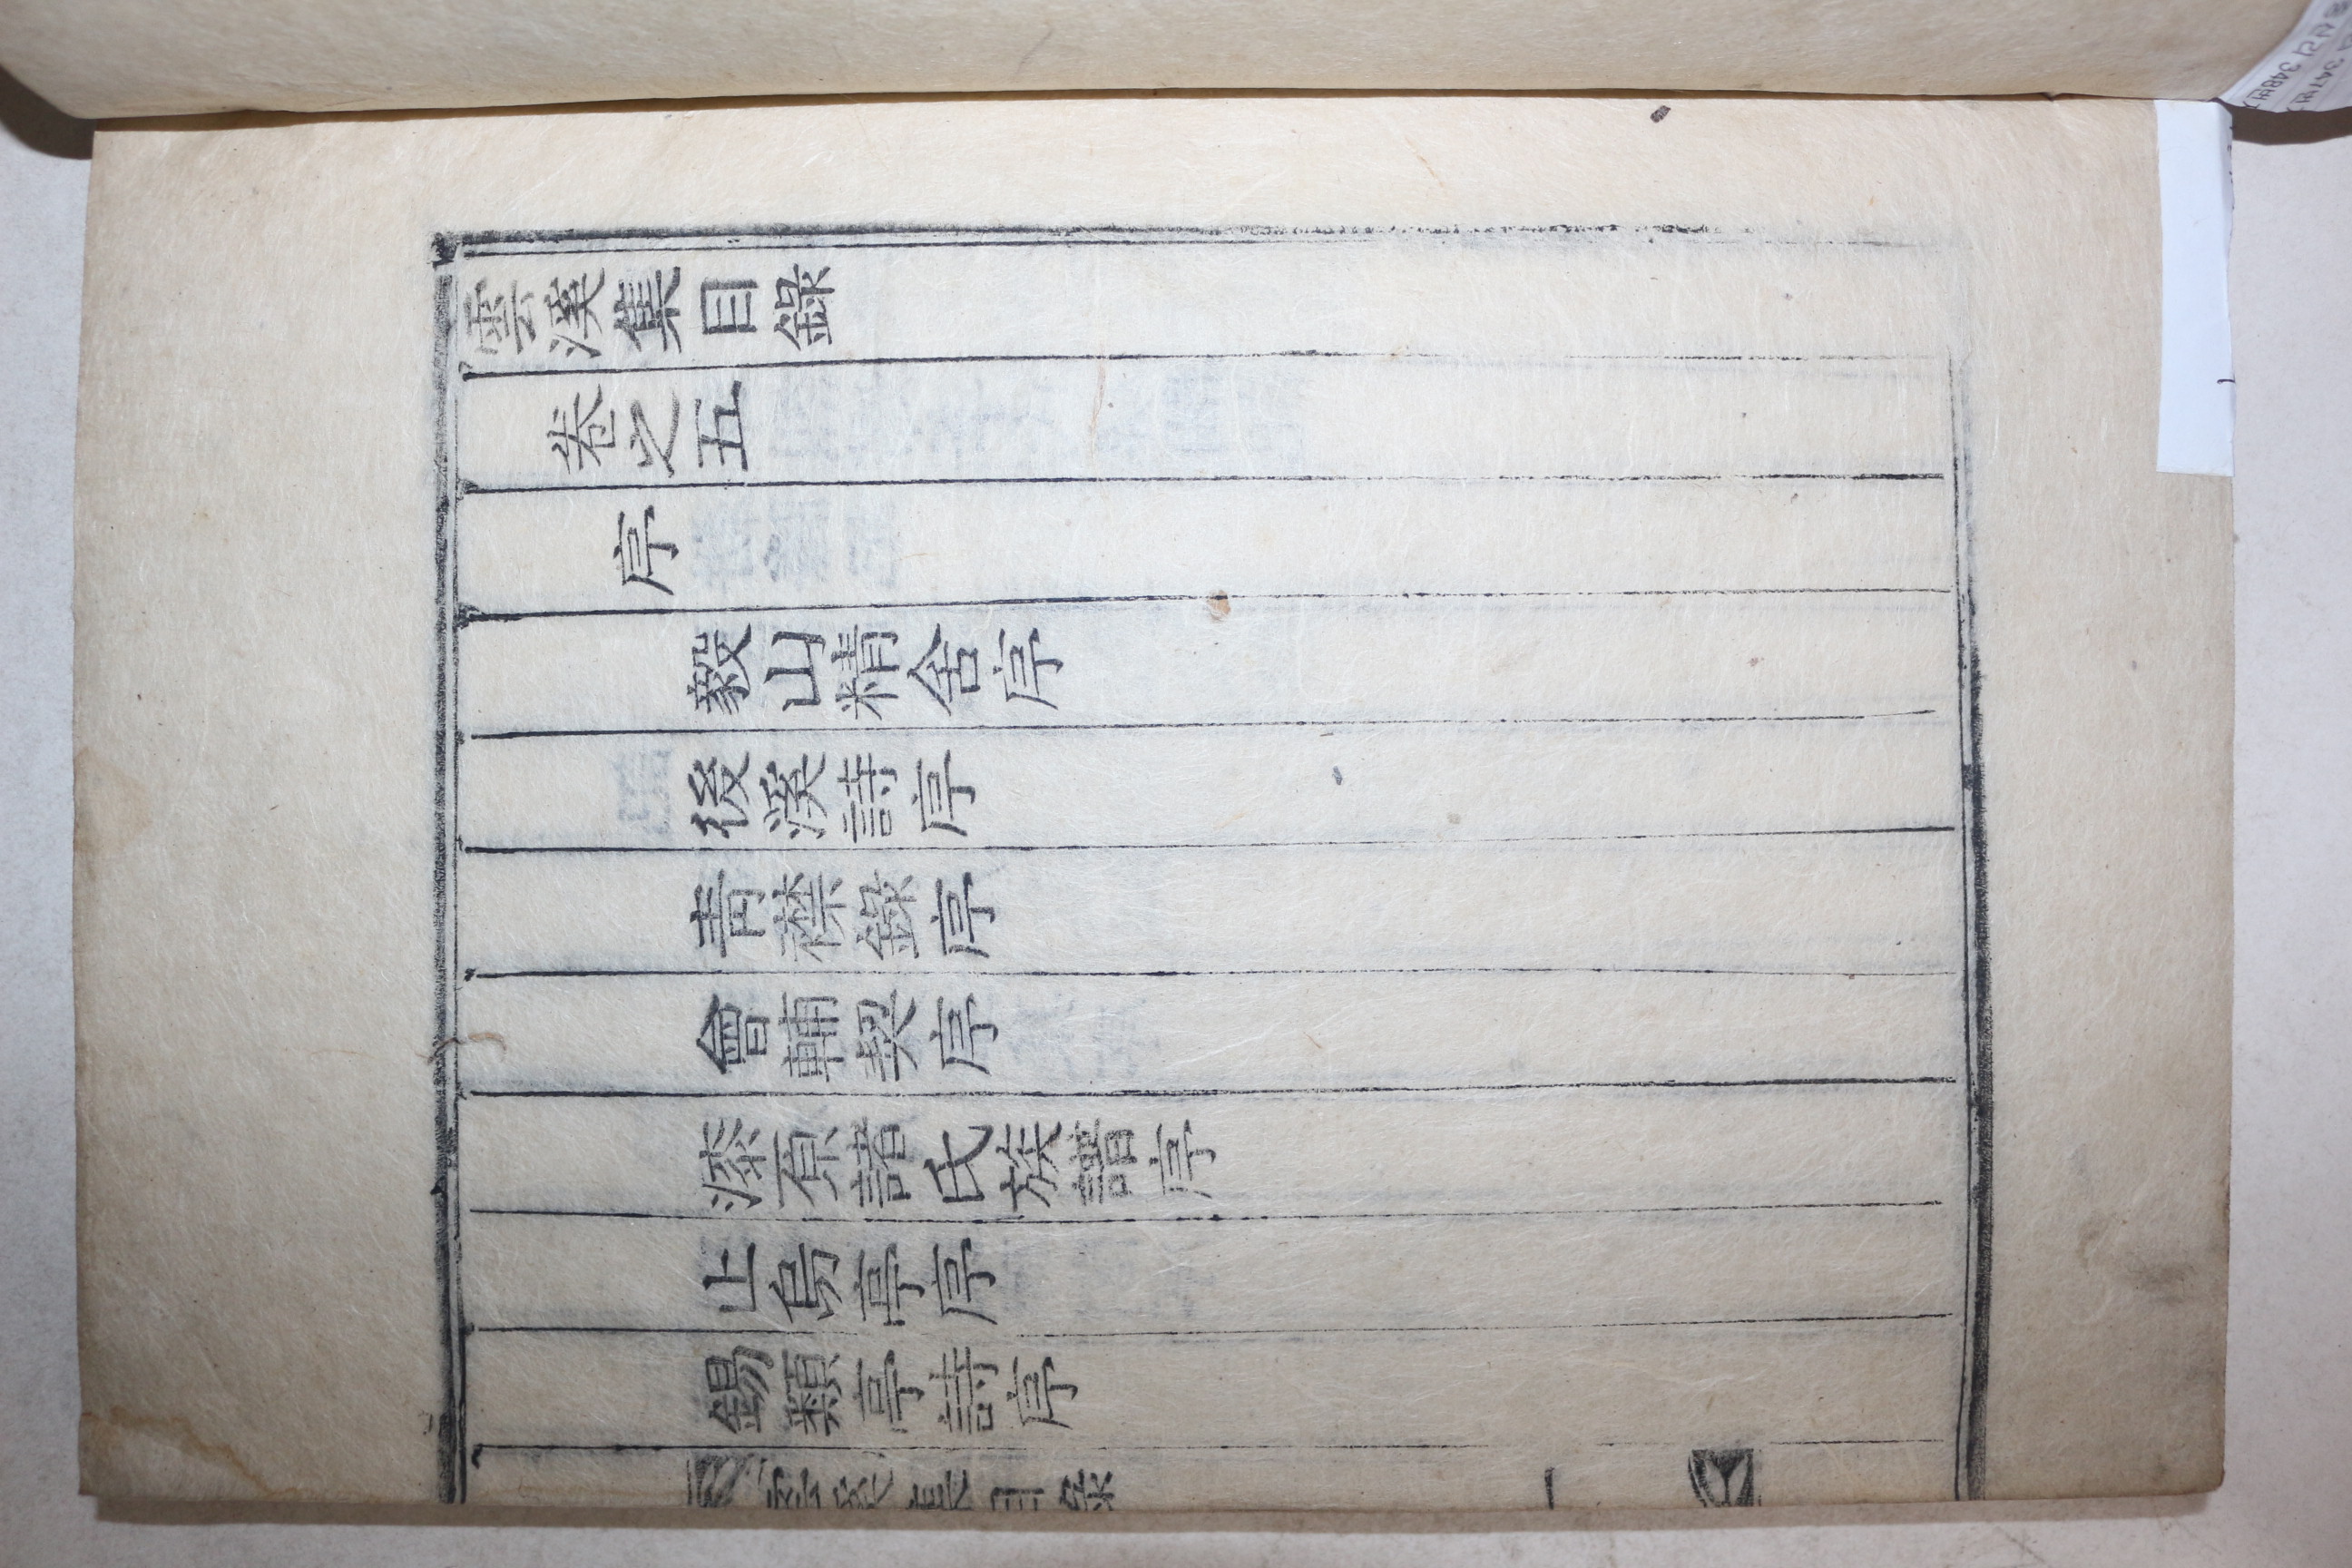 雲溪集目錄
卷之五
序
毅山精舍序
後溪詩序
靑襟錄序
會輔契序
漆原諸氏族譜序
止亭序
錫類亭詩序
雲溪集目錄 一